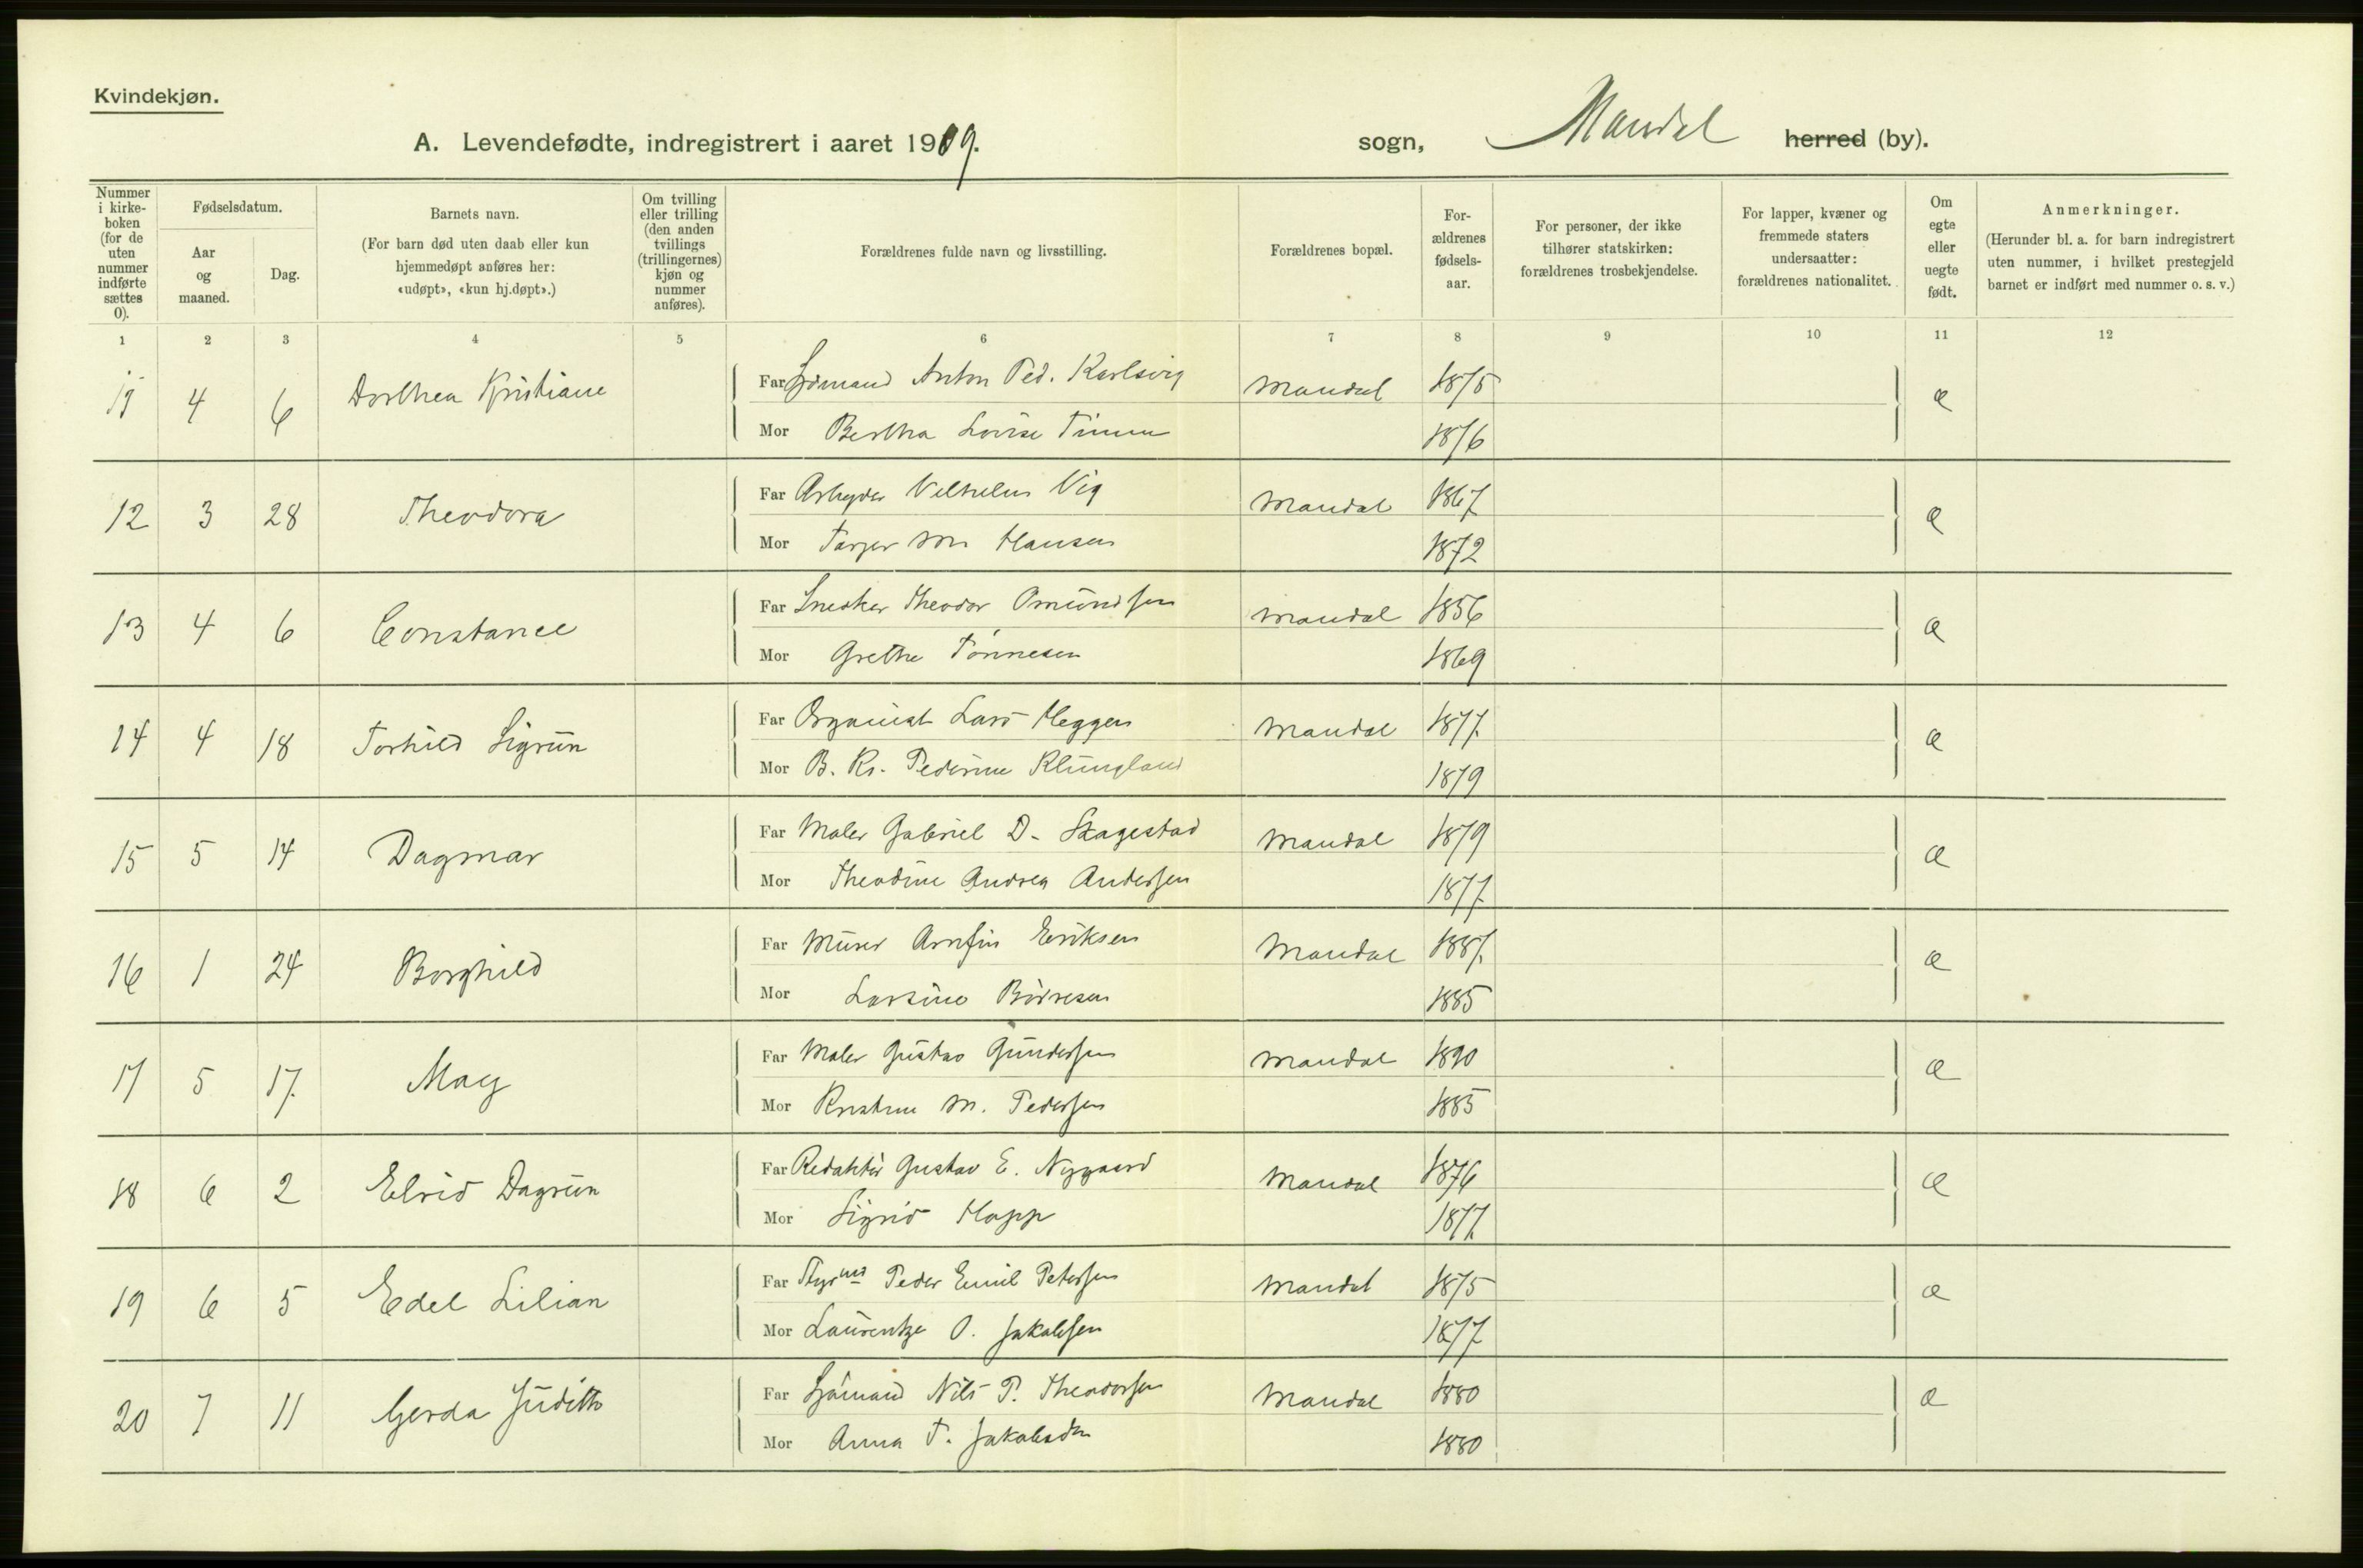 Kvindekjøn.
A. Levendefødte, indregistrert i aaret 1909.
sogn, Mandal herred (by).
Nummer i kirke-boken (for de uten nummer indførte sættes 0).
Fødselsdatum.
Aar og maaned.
Dag.
Barnets navn.
(For barn død uten daab eller kun hjemmedøpt anføres her: «udøpt», «kun hj.døpt».)
Om tvilling eller trilling (den anden tvillings (trillingernes) kjøn og nummer anføres).
Forældrenes fulde navn og livsstilling.
Forældrenes bopæl.
For-ældrenes fødsels-aar.
For personer, der ikke tilhører statskirken: forældrenes trosbekjendelse.
For lapper, kvæner og fremmede staters undersaatter: forældrenes nationalitet.
Om egte eller uegte født.
Anmerkninger.
(Herunder bl. a. for barn indregistrert uten nummer, i hvilket prestegjeld barnet er indført med nummer o. s. v.)
1 2 3 4 5 6 7 8 9 10 11 12
4 6 Dorthea Kristiane Far Sjømand Anton Ped. Karlsvig Mandal 1875 e
Mor Bertha Lovise Timm 1876
12 3 28 Theodora Far Arbeyder Vilhelm Vig Mandal 1867 e
Mor Hansen 1872
13 4 6 Constance Far Snedker Theodor Omundsen Mandal 1856 e
Mor Grethe Tønnesen 1869
14 4 18 Torhild Sigrun Far Organist Lars Heggen Mandal 1877 e
Mor B. Kr. Pedrine Klungland 1879
15 5 14 Dagmar Far Maler Gabriel D. Skagestad Mandal 1879 e
Mor Theodine Andrea Andersen 1877
16 1 24 Borghild Far Murer Arnfin Eriksen Mandal 1887 e
Mor Larsine Börresen 1885
17 5 17 May Far Maler Gustav Gundersen Mandal 1890 e
Mor Kristine M. Pedersen 1885
18 6 2 Elrid Dagrun Far Redaktør Gustav E. Nygaard Mandal 1876 e
Mor Sigrid Happ 1877
19 6 5 Edel Lilian Far Styrmd Peder Emil Petersen Mandal 1875 e
Mor Laurentze O. Jakobsen 1877
20 7 11 Gerda Judith Far Sjömand Nils P. Theodorsen Mandal 1880 e
Mor Anna T. Jakobsen 1880